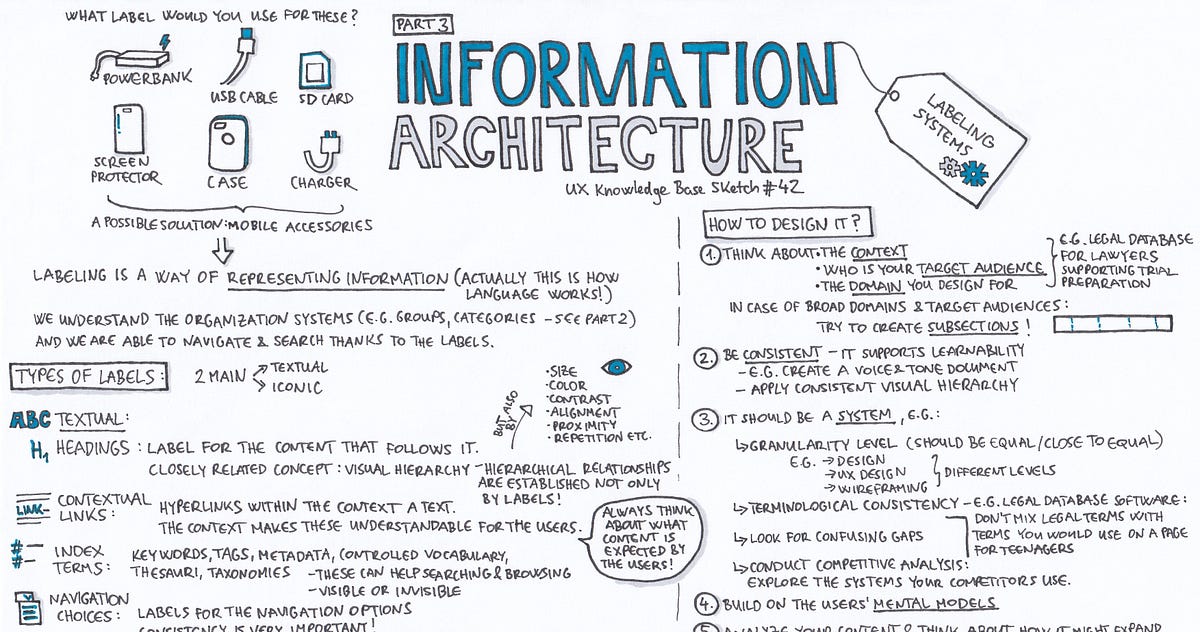 WHAT LABEL WOULD YOU USE FOR THESE?
POWERBANK
USB CABLE
SD CARD
SCREEN
PROTECTOR
CASE
CHARGER
A POSSIBLE SOLUTION: MOBILE ACCESSORIES
PART 3
INFORMATION
ARCHITECTURE
UX Knowledge Base Sketch #42
LABELING
SYSTEMS
LABELING IS A WAY OF REPRESENTING INFORMATION (ACTUALLY THIS IS HOW
LANGUAGE WORKS!)
WE UNDERSTAND THE ORGANIZATION SYSTEMS (E.G. GROUPS, CATEGORIES - SEE PART 2)
AND WE ARE ABLE TO NAVIGATE & SEARCH THANKS TO THE LABELS.
TYPES OF LABELS:
2 MAIN
TEXTUAL
ICONIC
ABC TEXTUAL:
H1 HEADINGS: LABEL FOR THE CONTENT THAT FOLLOWS IT.
CLOSELY RELATED CONCEPT: VISUAL HIERARCHY - HIERARCHICAL RELATIONSHIPS
ARE ESTABLISHED NOT ONLY
BY LABELS!
BUT ALSO
BY
• SIZE
• COLOR
• CONTRAST
• ALIGNMENT
• PROXIMITY
• REPETITION ETC.
LINK
CONTEXTUAL
LINKS:
HYPERLINKS WITHIN THE CONTEXT A TEXT.
THE CONTEXT MAKES THESE UNDERSTANDABLE FOR THE USERS.
ALWAYS THINK
ABOUT WHAT
CONTENT IS
EXPECTED BY
THE USERS!
#
#
INDEX
TERMS:
KEYWORDS, TAGS, METADATA, CONTROLLED VOCABULARY,
THESAURI, TAXONOMIES - THESE CAN HELP SEARCHING & BROWSING
- VISIBLE OR INVISIBLE
NAVIGATION
CHOICES:
LABELS FOR THE NAVIGATION OPTIONS
CONSISTENCY IS VERY IMPORTANT!
HOW TO DESIGN IT?
1. THINK ABOUT • THE CONTEXT
• WHO IS YOUR TARGET AUDIENCE
• THE DOMAIN YOU DESIGN FOR
E.G. LEGAL DATABASE
FOR LAWYERS
SUPPORTING TRIAL
PREPARATION
IN CASE OF BROAD DOMAINS & TARGET AUDIENCES:
TRY TO CREATE SUBSECTIONS!
2. BE CONSISTENT - IT SUPPORTS LEARNABILITY
- E.G. CREATE A VOICE & TONE DOCUMENT
- APPLY CONSISTENT VISUAL HIERARCHY
3. IT SHOULD BE A SYSTEM, E.G.:
↳ GRANULARITY LEVEL (SHOULD BE EQUAL/CLOSE TO EQUAL)
E.G. → DESIGN
→ UX DESIGN
→ WIREFRAMING
DIFFERENT LEVELS
↳ TERMINOLOGICAL CONSISTENCY - E.G. LEGAL DATABASE SOFTWARE:
DON'T MIX LEGAL TERMS WITH
TERMS YOU WOULD USE ON A PAGE
FOR TEENAGERS
↳ LOOK FOR CONFUSING GAPS
↳ CONDUCT COMPETITIVE ANALYSIS:
EXPLORE THE SYSTEMS YOUR COMPETITORS USE.
4. BUILD ON THE USERS' MENTAL MODELS
5. ANALYZE YOUR CONTENT & THINK ABOUT HOW IT MIGHT EXPAND